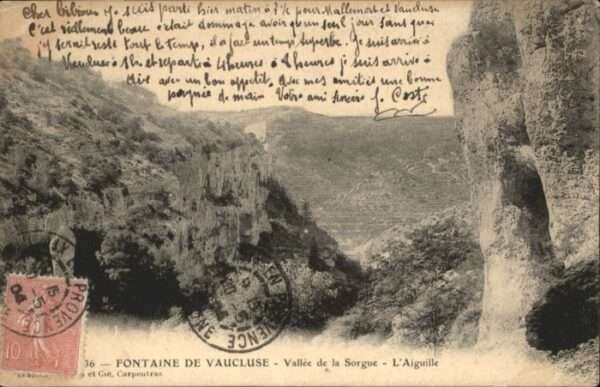 Cher Bibiou je suis parti hier matin à 7 h pour Mallemort et Vaucluse
C'est réellement beau c'était dommage avoir qu'un seul jour sans quoi
j'y serait resté tout le temps, il a fait un temps superbe. Je suis arrivé à
Vaucluse à 1h et reparti à 4 heures à 8 heures je suis arrivé à
avec un bon appetit, avec mes amitiés une bonne
poignée de main Votre ami sincère J. Coste
36 - FONTAINE DE VAUCLUSE - Vallée de la Sorgue - L'Aiguille
et Cie, Carpentras
10
PROVENCE
15
04